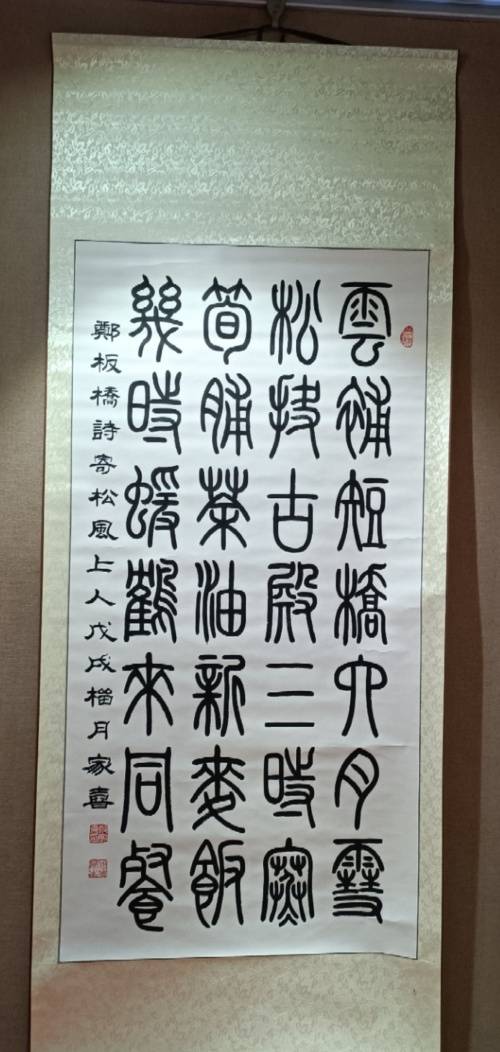 雲補短橋六月雪
松扶古殿三時寒
筍脯茶油新麥飯
幾時蝯鶴來同餐
鄭板橋詩寄松風上人戊戌榴月家喜